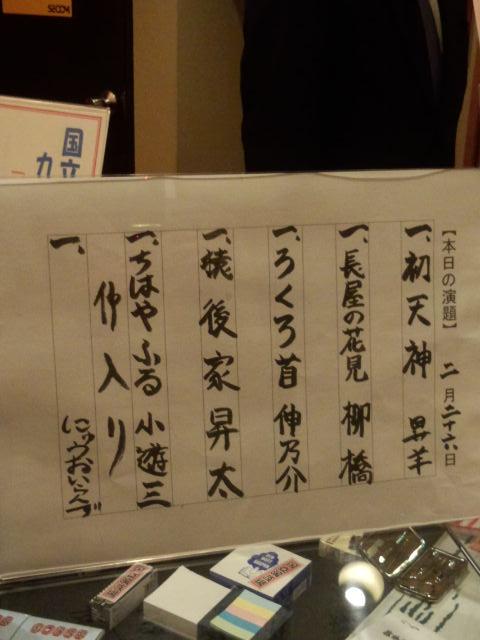 【本日の演題】 二月二十六日
一、初天神 昇羊
一、長屋の花見 柳橋
一、ろくろ首 伸乃介
一、後家 昇太
一、ちはやふる 小遊三
仲入り
一、 にゅうおいらんず
国立
SECOM